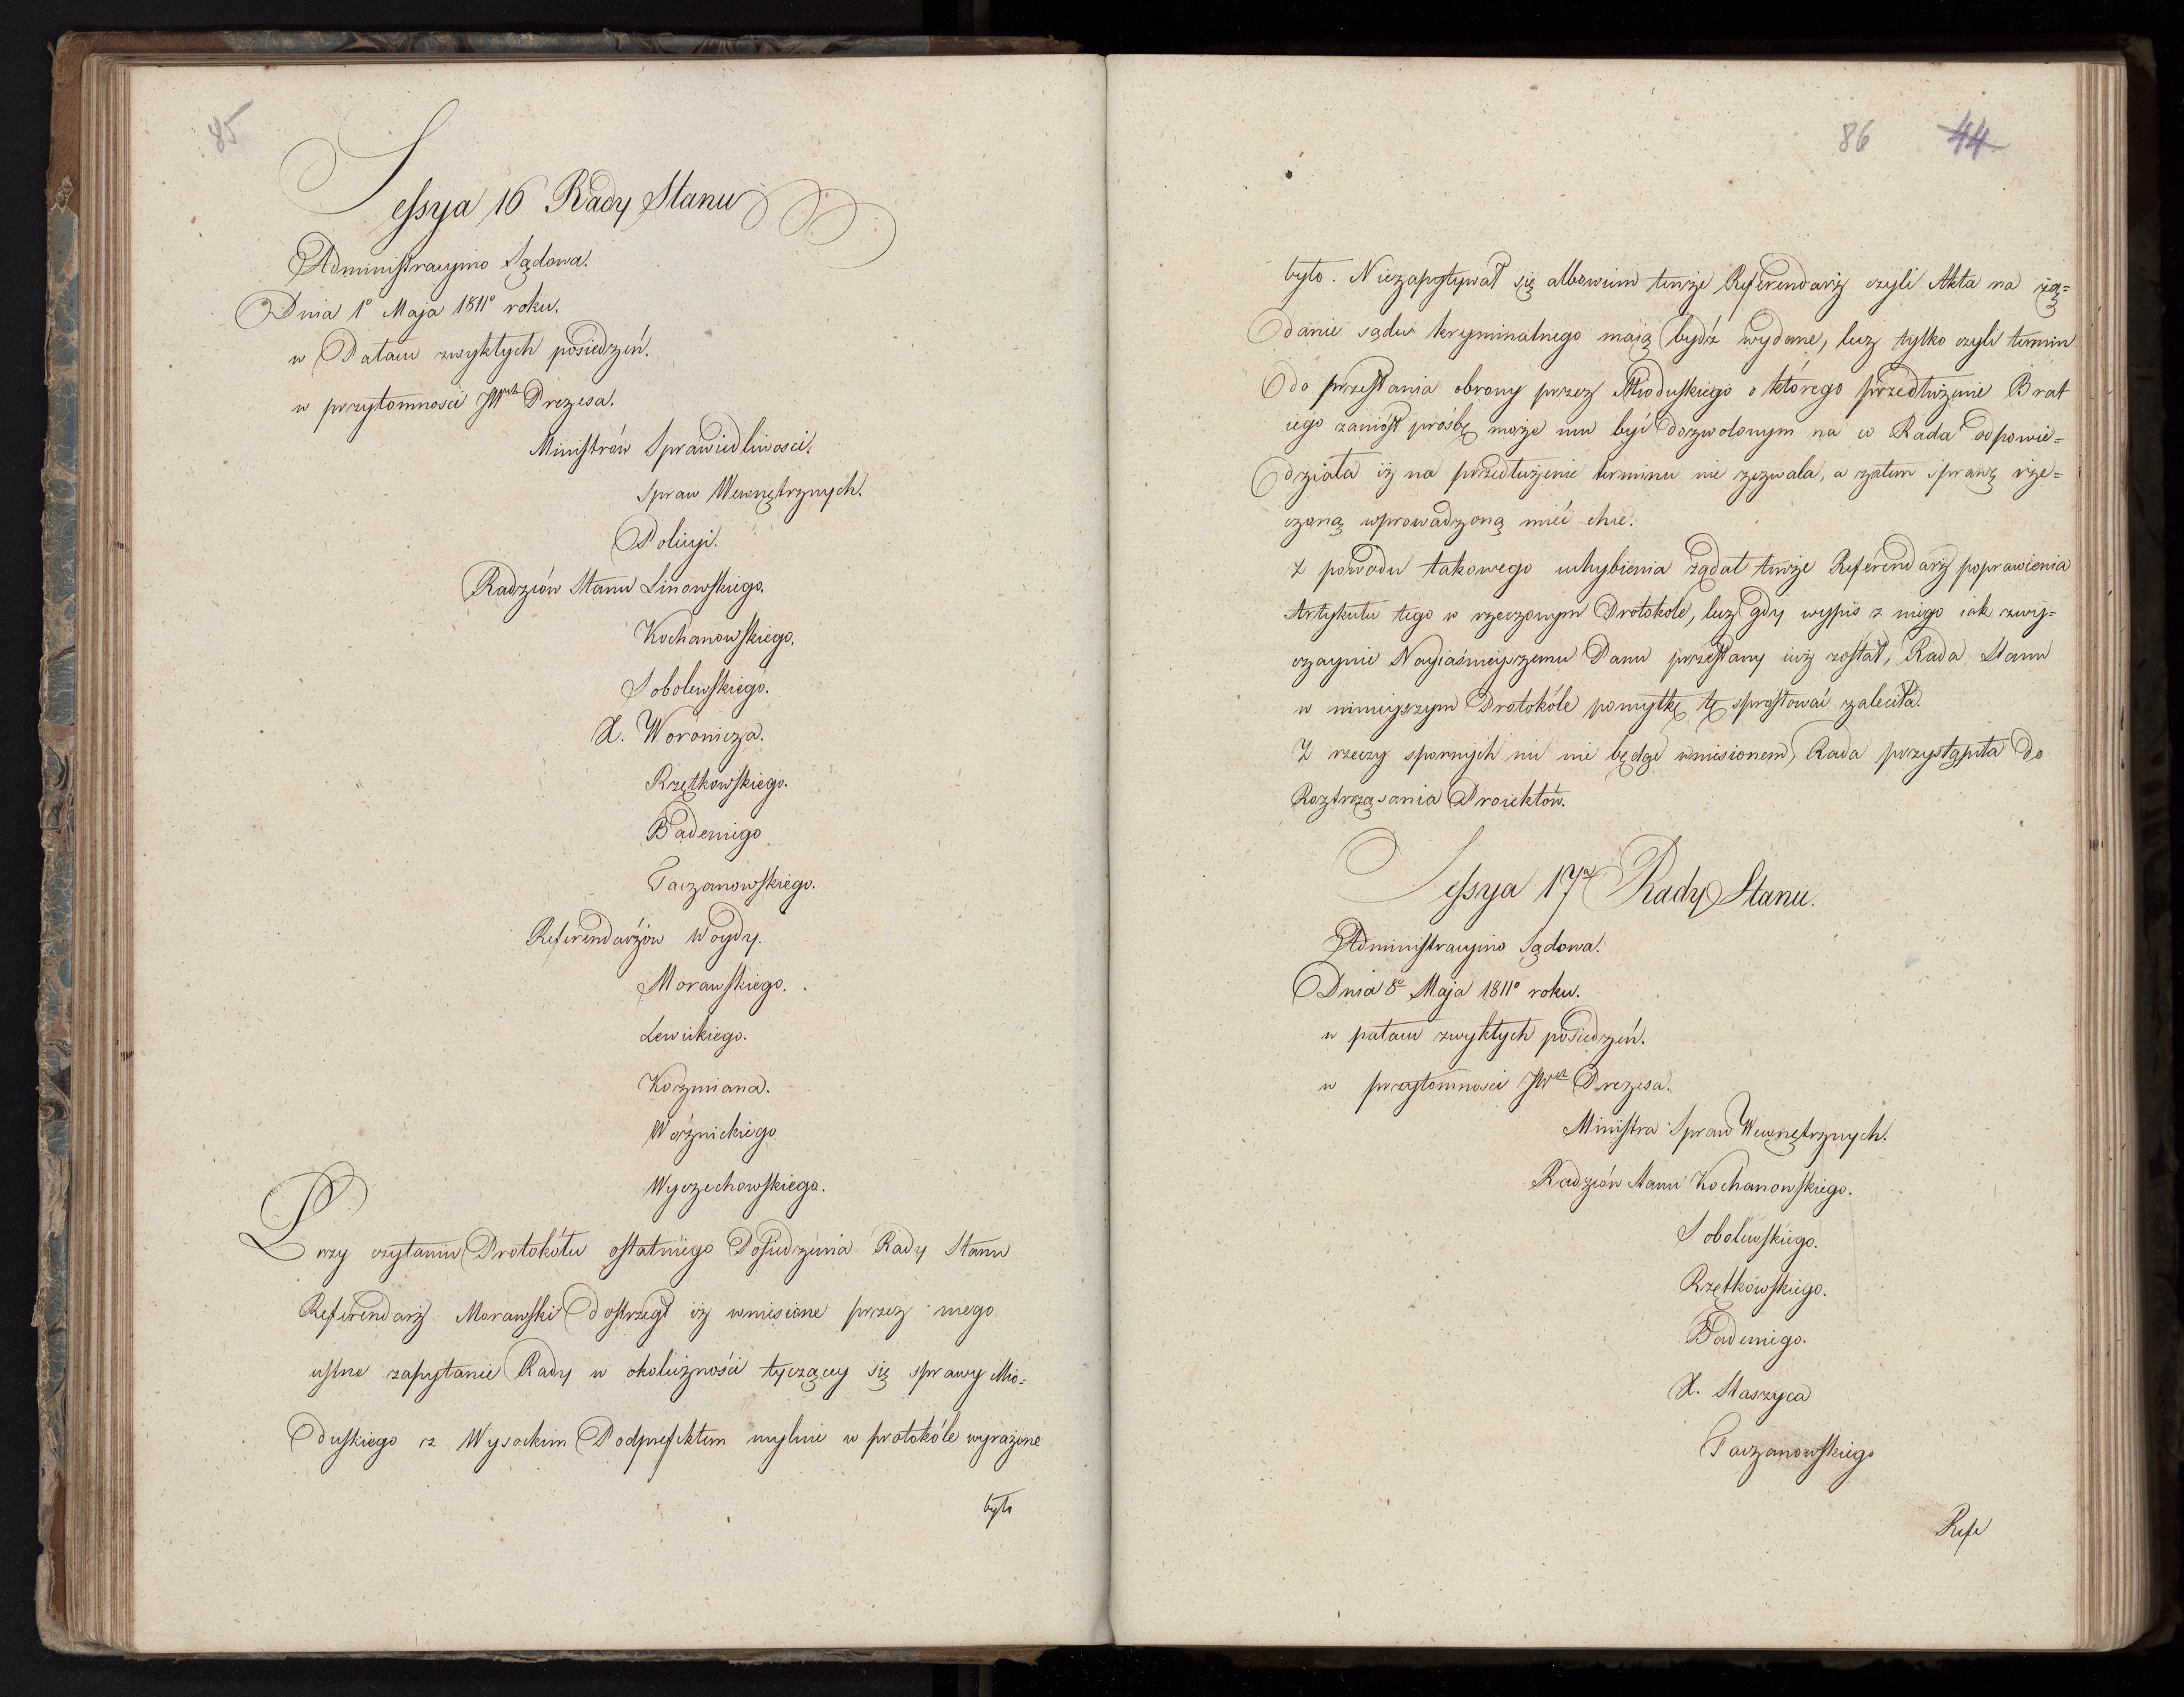 85
Sessya 16 Rady Stanu
Administracyino Sądowa.
Dnia 1º Maja 1811º roku.
w Pałacu zwykłych posiedzeń.
w przytomności JW Prezesa.
Ministrów Sprawiedliwości.
Spraw Wewnętrznych.
Policyi.
Radzców Stanu Linowskiego.
Kochanowskiego.
Sobolewskiego.
X. Woronicza.
Rzętkowskiego.
Badeniego
Taczanowskiego.
Referendarzów Woydy.
Morawskiego.
Lewickiego.
Koźmiana.
Woźnickiego
Wyczechowskiego.
Przy czytaniu Protokółu ostatniego Posiedzenia Rady Stanu
Referendarz Morawski dostrzegł iż wniesione przez niego
ustne zapytanie Rady w okoliczności tyczącey się sprawy Mio=
duskiego z Wysockim Podprefektem mylnie w protokóle wyrażone
było
86 44
było. Niezapytywał się albowiem tenże Referendarz czyli Akta na żą=
danie sądu kryminalnego maią bydź wydane, lecz tylko czyli termin
do przesłania obrony przez Mioduskiego o którego przedłużenie Brat
iego zaniósł prośbę może mu być dozwolonym na co Rada odpowie=
działa iż na przedłużenie terminu nie zezwala, a zatem sprawę rze=
czoną wprowadzoną mieć chce.
Z powodu takowego uchybienia żądał tenże Referendarz poprawienia
Artykułu tego w rzeczonym Protokole, lecz gdy wypis z niego iak zwy=
czaynie Nayiaśnieyszemu Panu przesłany iuż został, Rada Stanu
w ninieyszym Protokóle pomyłkę tę sprostować zaleciła.
Z rzeczy spornych nic nie będąc wniesionem, Rada przystąpiła do
Roztrząsania Proiektów.
Sessya 17ª Rady Stanu.
Administracyino Sądowa.
Dnia 8º Maja 1811º roku.
w pałacu zwykłych posiedzeń.
w przytomności JW Prezesa.
Ministra Spraw Wewnętrznych.
Radzców Stanu Kochanowskiego.
Sobolewskiego.
Rzętkowskiego.
Badeniego.
X. Staszyca
Taczanowskiego
Refe